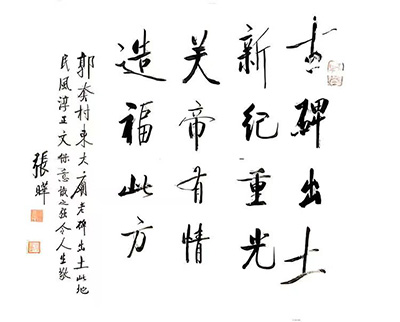 古碑出土
新纪重光
关帝有情
造福此方
郭套村东大庙老碑出土此地
民风淳正文保意识之强令人生敬
張暉